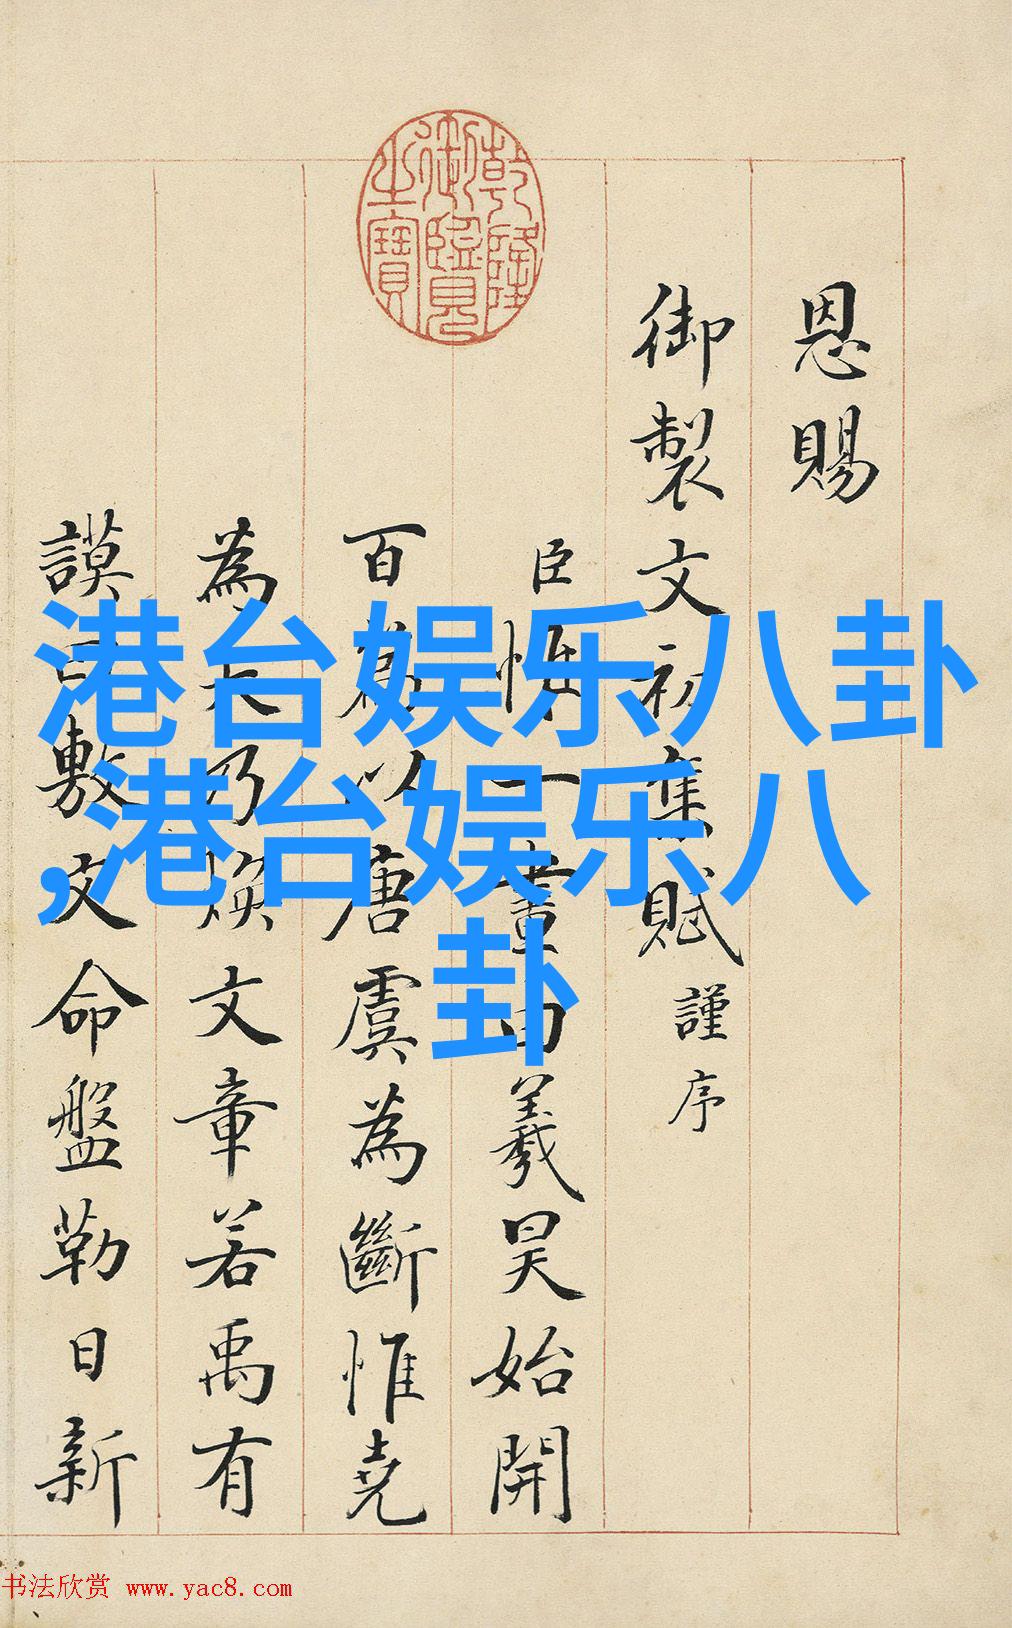 乾隆御覽之寶
恩賜
御製文初集賦謹序
臣惟一畫由羲昊始開
百以唐虞為斷惟堯
為大乃煥文章若禹有
謨曰敷文命盤勒日新
港台娱乐八卦
,港台娱乐八
卦
书法欣赏 www.yac8.com